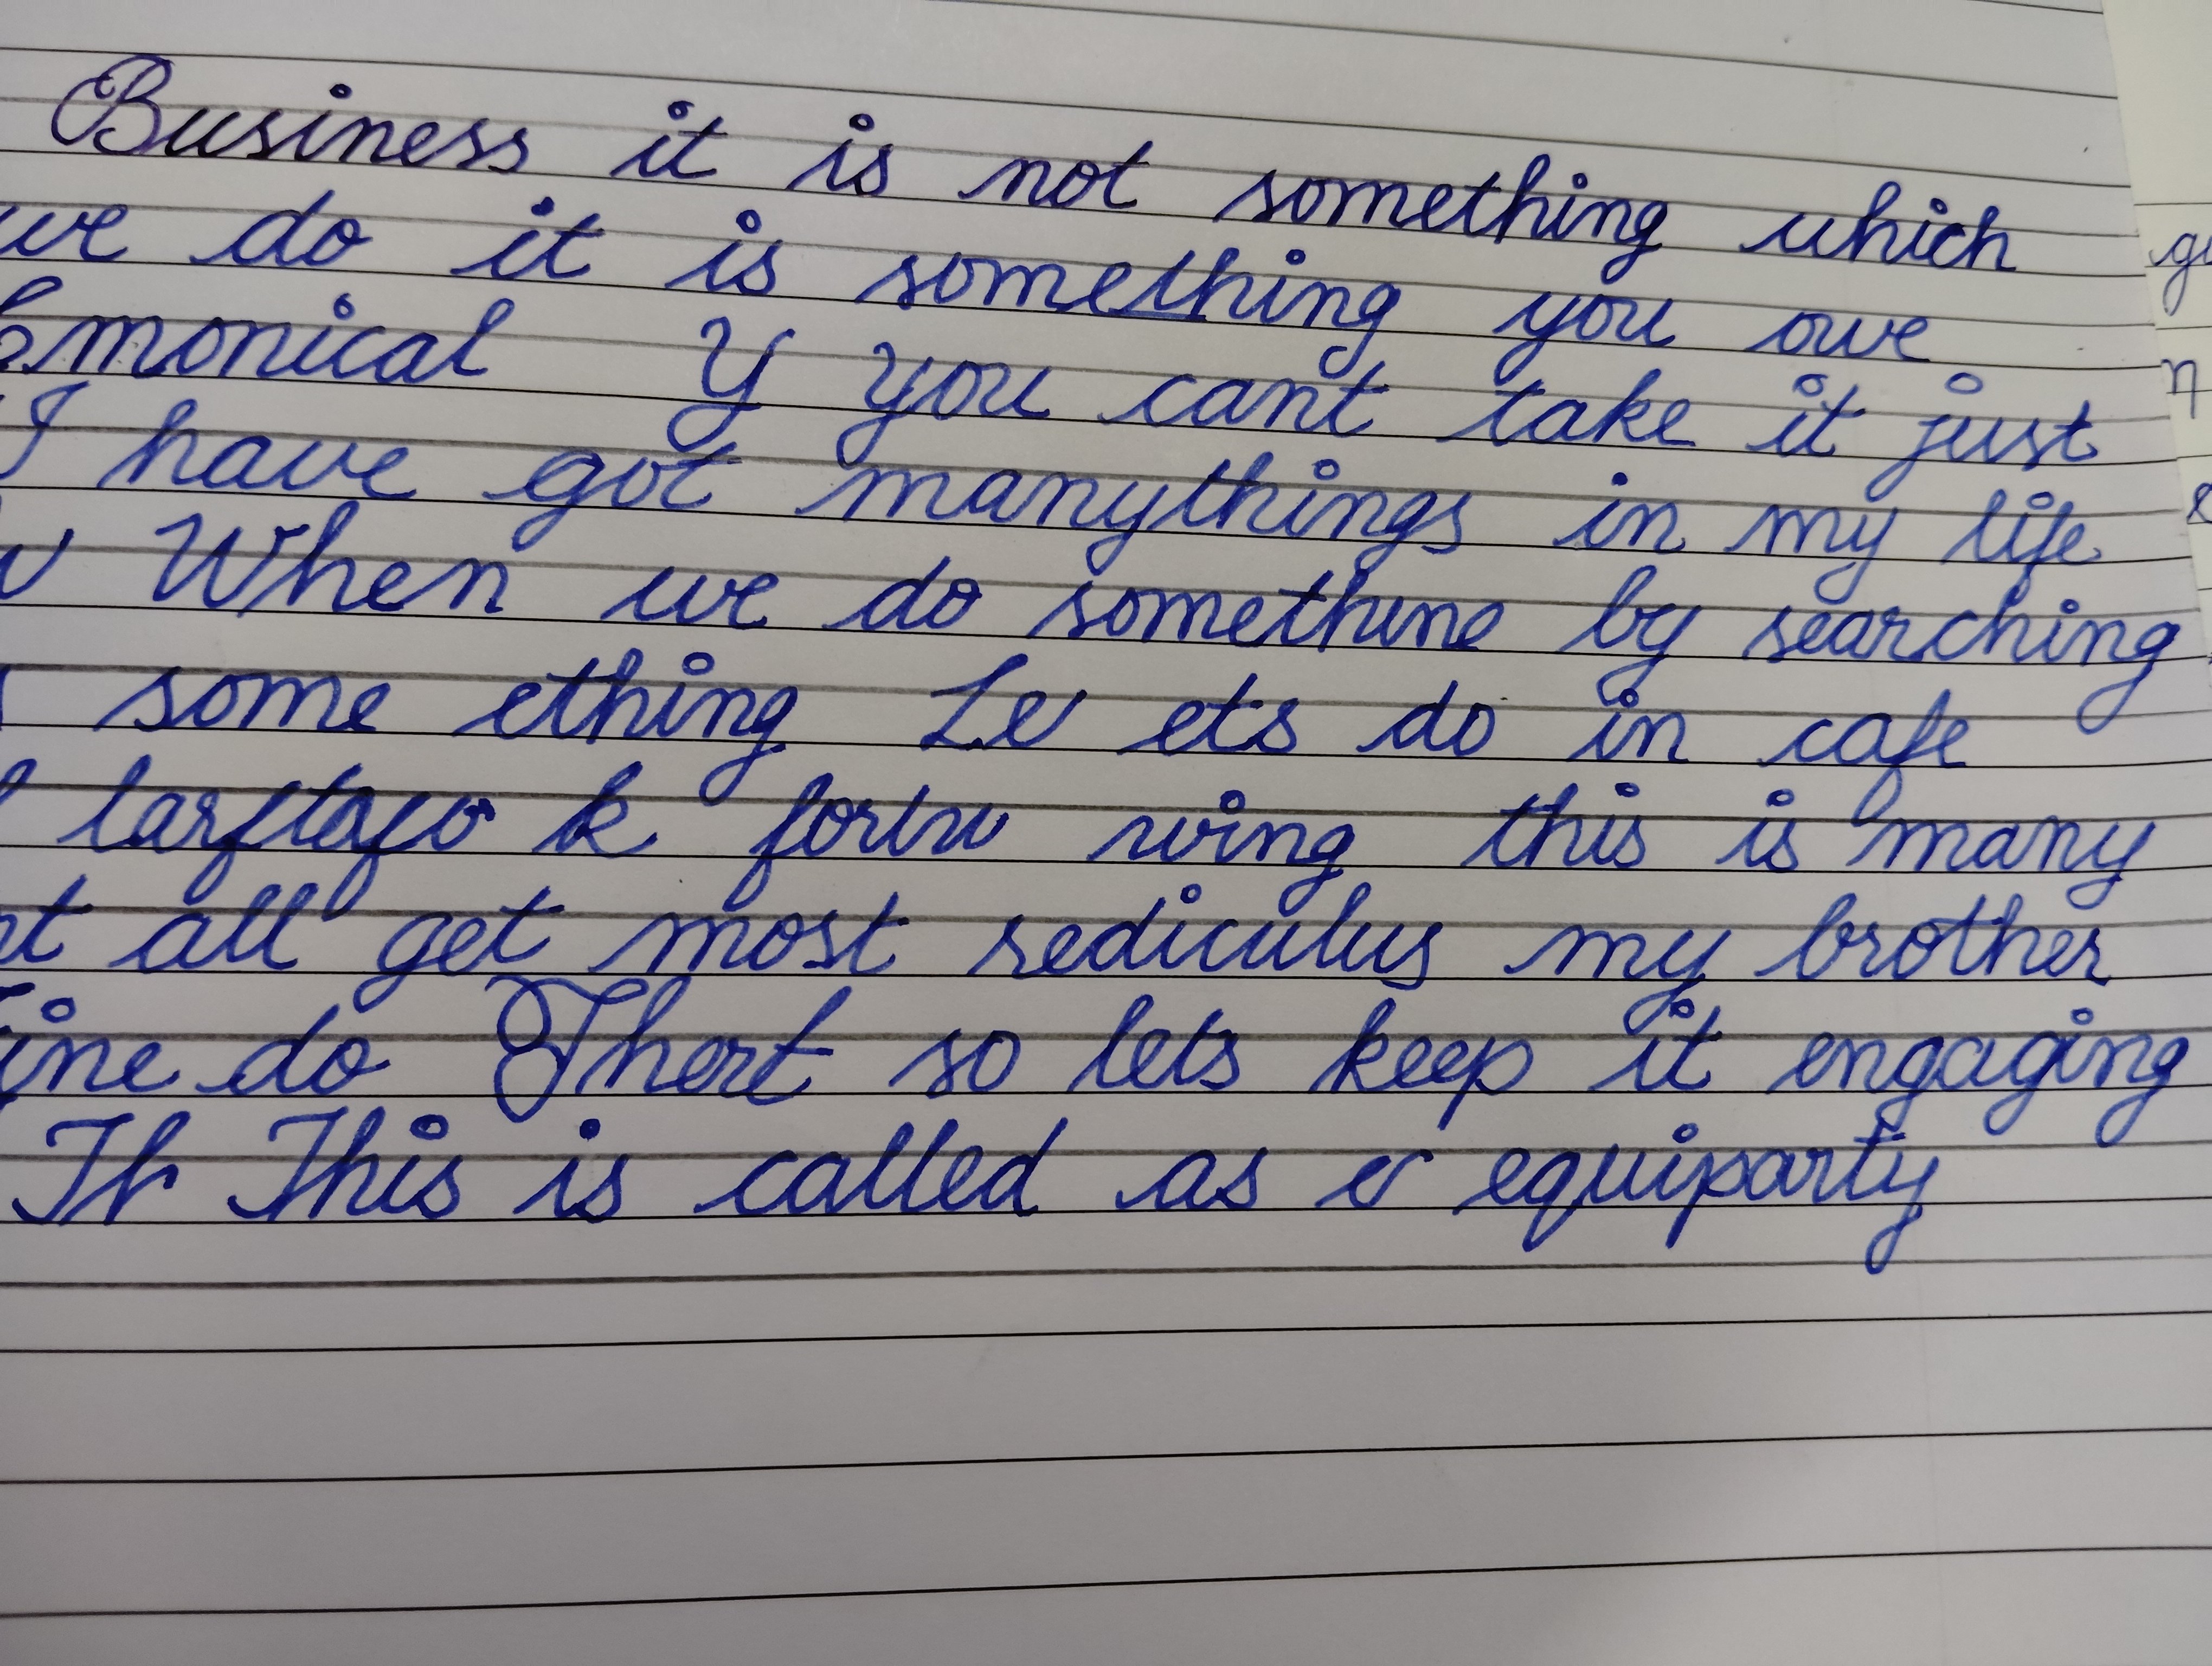 Business it is not something which
we do it is something you owe
monical Y you cant take it just
I have got manythings in my life
When we do somethine by searching
some ething Le ets do in cafe
k wing this is many
all get most rediculus my brother
ine do Thert so lets keep it engaging
Th This is called as e equiparty